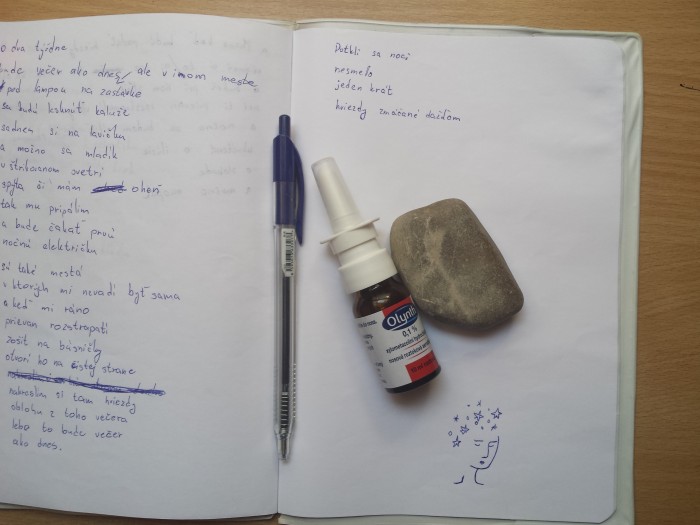 o dva týždne
bude večer ako dnes, ale v inom meste
pod lampou na zastávke
sa budú lesknúť kaluže
sadnem si na lavičku
a možno sa mladík
v štrikovanom svetri
spýta či mám oheň
tak mu pripálim
a bude čakať prvú
nočnú električku
sú také mestá
v ktorých mi nevadí byť sama
a keď mi ráno
prievan rozstrapatí
zošit na básničky
otvorí ho na čistej strane
nakreslím si tam hviezdy
oblohu z toho večera
lebo to bude večer
ako dnes.
Dotkli sa noci
nesmelo
jeden krát
hviezdy zmáčané dažďom
Olynth
0,1 %